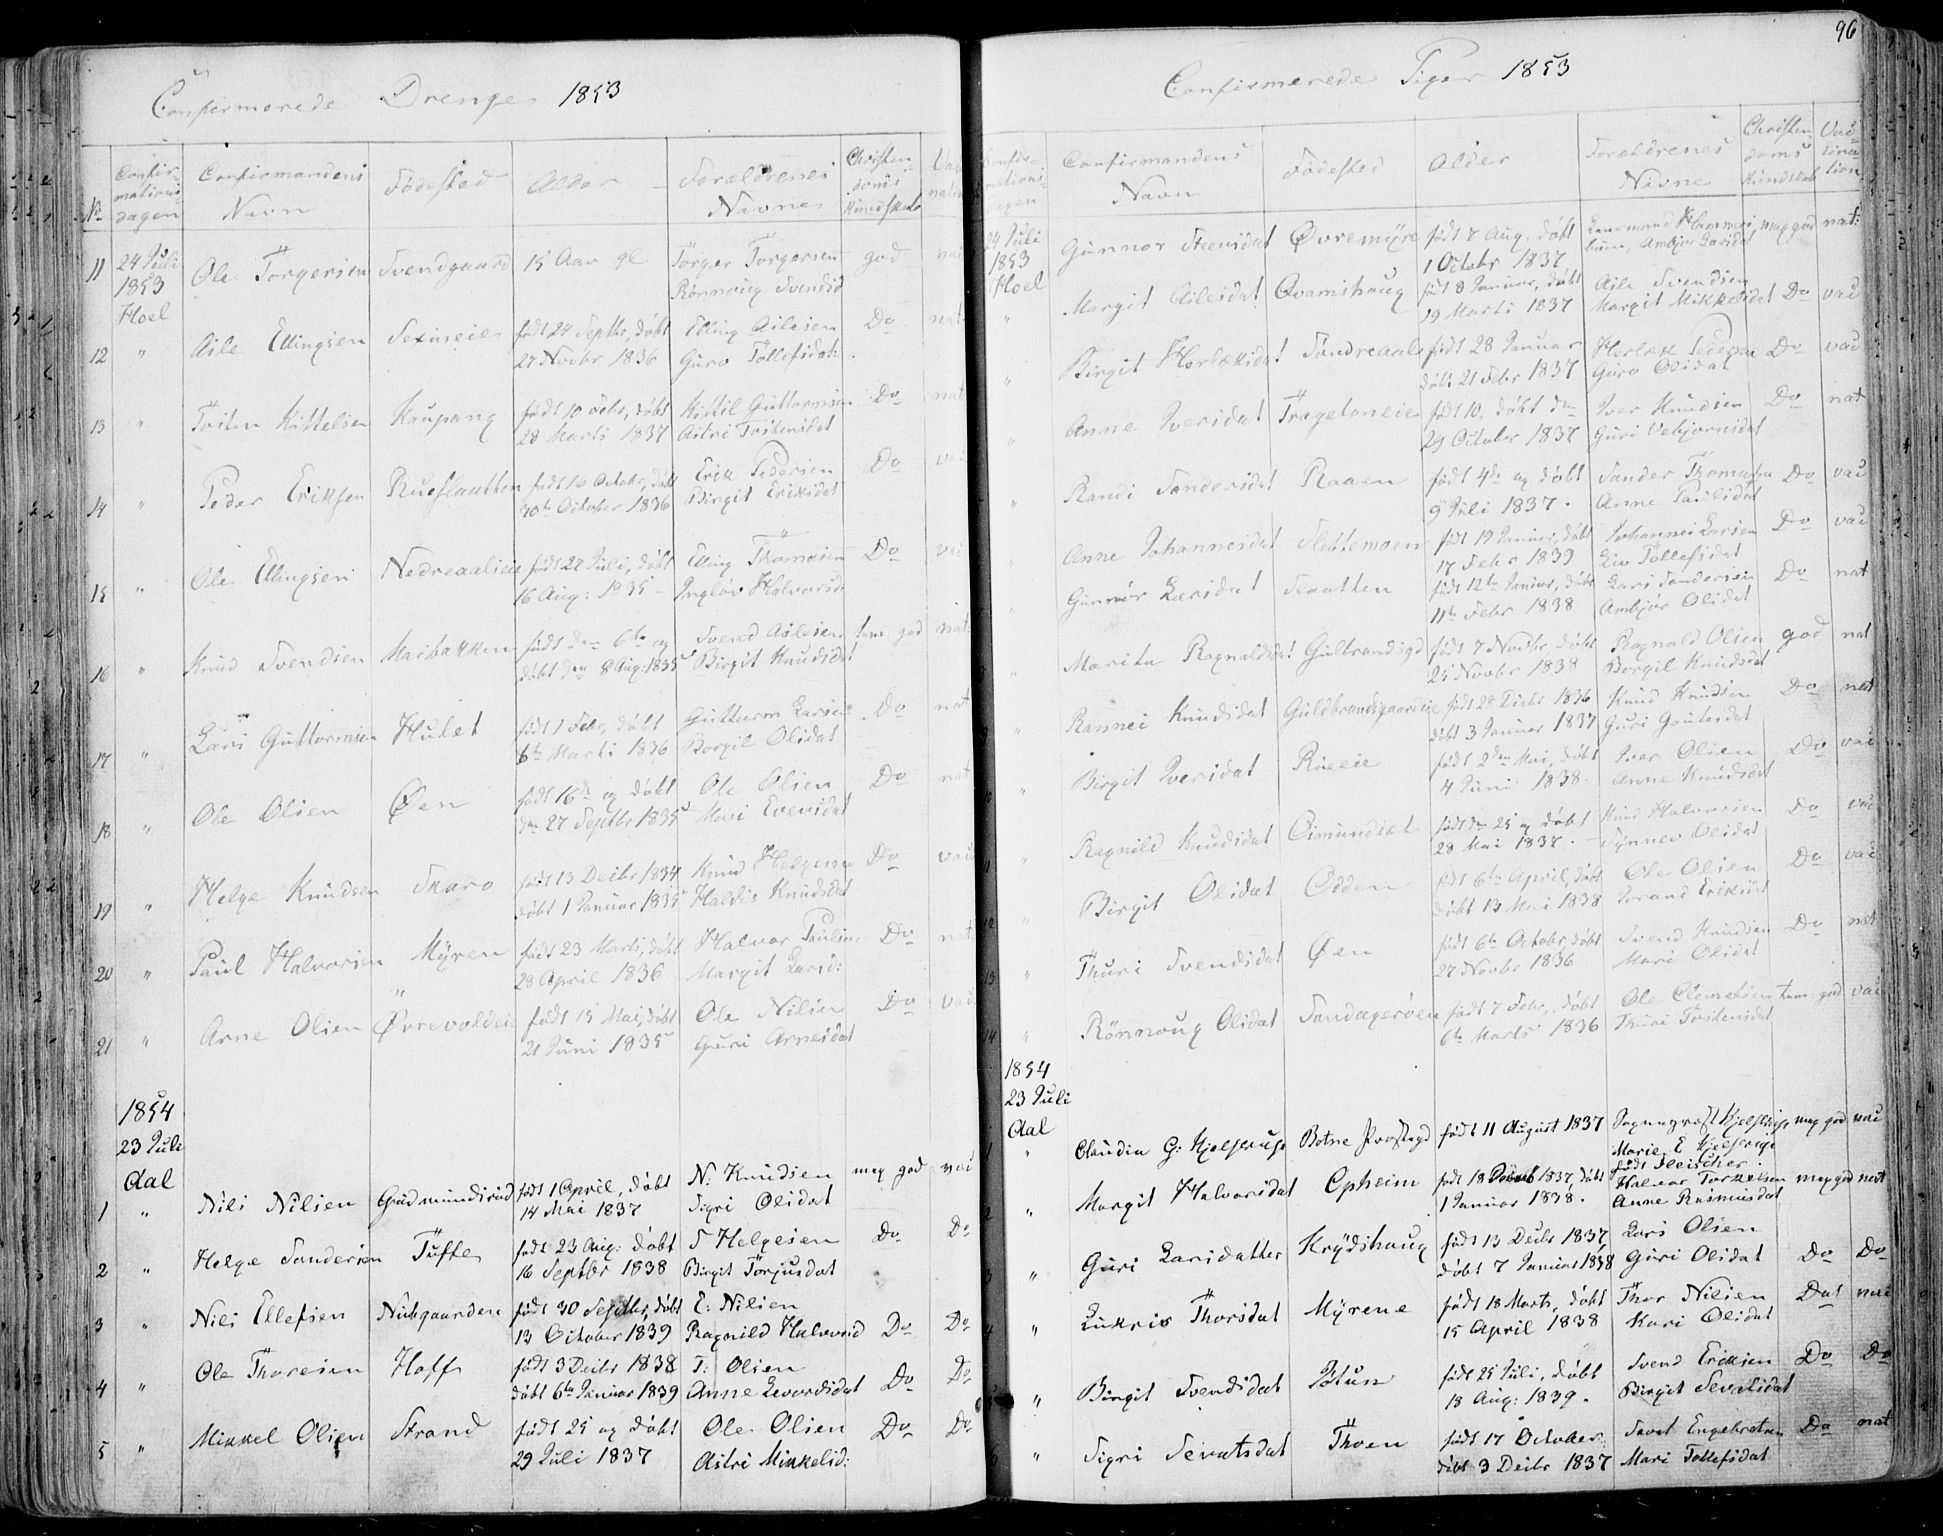 96
Confirmerede Drenge 1853
No
Confir-
mations-
dagen
Confirmandens
Navn
Fødested
Alder
Forældrenes
Navne
Christen-
doms
Kundskab
11 24 Juli Ole Torgersen Svendgaard 15 Aar gl Torger Torgersen god
1853 Rønnoug Svendsd
Hoel
12 " Aile Ellingsen født 24 Septbr, døbt Elling Ailesen Do nat
27 Novbr 1836 Guro Tollefsdat:
13 " Tosten Kittelsen Kaupang født 10 Febr, døbt Kittil Guttormsen Do nat
28 Marts 1837 Astri Tostensdat
14 " Peder Eriksen Rueslaatten født 16 Octobr, døbt Erik Pedersen Do vac
30te October 1836 Birgit Eriksdat
15 " Ole Ellingsen Nedreaalieie født 28 Juli, døbt Elling Thomasen Do vac
16 Aug: 1835 Ingløv Halvorsd:
16 " Knud Svendsen Maibakken født den 6te og Svend Ailesen tem. god nat:
døbt den 8 Aug: 1835 Birgit Knudsdat
17 " Lars Guttormsen Hulet født 1 Febr, døbt Gutturm Larsen Do nat
6te Marts 1836 Borgil Olsdat
18 " Ole Olsen Øen født 16de og døbt Ole Olsen Do nat
den 27 Septbr 1835 Mari Evensdat
19 " Helge Knudsen Skaro født 13 Decbr 1834 Knud Helgesen Do vac
døbt 1 Januar 1835 Haldis Knudsdat
20 " Paul Halvorsen Myren født 23 Marts, døbt Halvor Paulsen Do nat
28 April 1836 Margit Larsd:
21 " Arne Olsen Øvrevoldeie født 15 Mai, døbt Ole Nilsen Do vac
21 Juni 1835 Guri Arnesdat
1854
23 Juli
Aal
1 " Nils Nilsen Gudmundsrud født 1 April, døbt N: Knudsen meg god vac
14 Mai 1837 Sigri Olsdat
2 " Helge Sandersen Tufte født 23 Aug: døbt S Helgesen Do Do
16 Septbr 1838 Birgit Torjusdat
3 " Nils Ellefsen Nubgaarden født 30 Septbr, døbt E: Nilsen Do Do
13 October 1839 Ragnild Halvorsd
4 " Ole Thoresen Hoff født 3 Decbr 1838 T: Olsen Do Do
døbt 6te Januar 1839 Anne Levordsdat
5 " Mikkel Olsen Strand født 25 og døbt Ole Olsen Do Do
29 Juli 1837 Astri Mikkelsd:
Confirmerede Piger 1853
Confirmandens
Navn
Fødested
Alder
Forældrenes
Navne
Christen-
doms
Kundskab
Vac-
cina-
tion
24 Juli Gunnor Steensdat Øvremyre født 8 Aug, døbt Lensmand meg god nat:
1853 1 Octobr 1837 Ambjør Larsdat
Hoel
" Margit Ailesdat Qvamshaug født 8 Januar, døbt Aile Svendsen Do vac
19 Marts 1837 Margit Mikkelsdat
" Birgit Herleksdat Sandreaale født 28 Januar Herlek Pedersen Do vac
døbt 21 Febr 1837 Guro Olsdat
" Anne Iversdat Tragetoneie født 10, døbt den Iver Knudsen Do nat
29 October 1837 Guri Vebjørnsdat
" Randi Sandersdat Raaen født 4de og døbt Sander Thomasen Do vac
9 Juli 1837. Anne Paulsdat
" Anne Johannesdat Slettemoen født 19 Januar, døbt Johannes Larsen Do vac
17 Febr 1839 Liv Tollefsdat
" Gunnor Larsdat Slaatten født 12te Januar, døbt Lars Sandersen Do nat
11te Febr 1838 Ambjør Olsdat
" Marita Ragnaldsdat Gulbrandsgd født 7 Novbr, døbt Ragnald Olsen god nat
25 Novbr 1838 Borgil Knudsdat
" Rannei Knudsdat Guldbrandsgaardeie født 28 Decbr 1836 Knud Knudsen Do nat
døbt 3 Januar 1837 Guri Goutesdat
" Birgit Iversdat Rueeie født 2den Mai, døbt Iver Olsen Do vac
4 Juni 1838. Anne Knudsdat
" Ragnild Knudsdat Eimundset født den 25 og døbt Knud Halvorsen Do vac
28 Mai 1837. Synnev Olsdat
" Birgit Olsdat Odden født 6te April, døbt Ole Olsen Do vac
døbt 13 Mai 1838 Jorand Eriksdat
13 " Thuri Svendsdat Øen født 6te Octobr, døbt Svend Knudsen Do nat
27 Novbr 1836 Mari Olsdat
14 " Rønnoug Olsdat Sandagerøen født 7 Febr, døbt Ole Clemetsen tem: god vac
6te Marts 1836 Thuri Tostensdat
1854
23 Juli
Aal
1 " Claudia G: Hjelstrup Botne Præstegd født 11 August 1837 Sognepræst Hjelstrup meg god vac
Marie E Hjelstrup
født Fleischer
2 " Margit Halvorsdat Opheim født 18 Decbr 1837, døbt Halvor Torkelsen meg god nat
1 Januar 1838. Anne Rasmusdat
3 " Guri Larsdatter Krydshaug født 13 Decbr 1837, Lars Olsen Do Do
døbt 7 Januar 1838 Guri Olsdat
4 " Lukris Thorsdat Myrene født 18 Marts, døbt Thor Nilsen Dat vac
15 April 1838 Kari Olsdat
" Birgit Svendsdat Østun født 25 Juli, døbt Svend Eriksen Do Do
18 Aug: 1839. Birgit Sevatsdat
" Sigri Sevatsdat Thoen født 17 October Sevat Engebretsen Do nat
døbt 3 Decbr 1837 Mari Tollefsdat